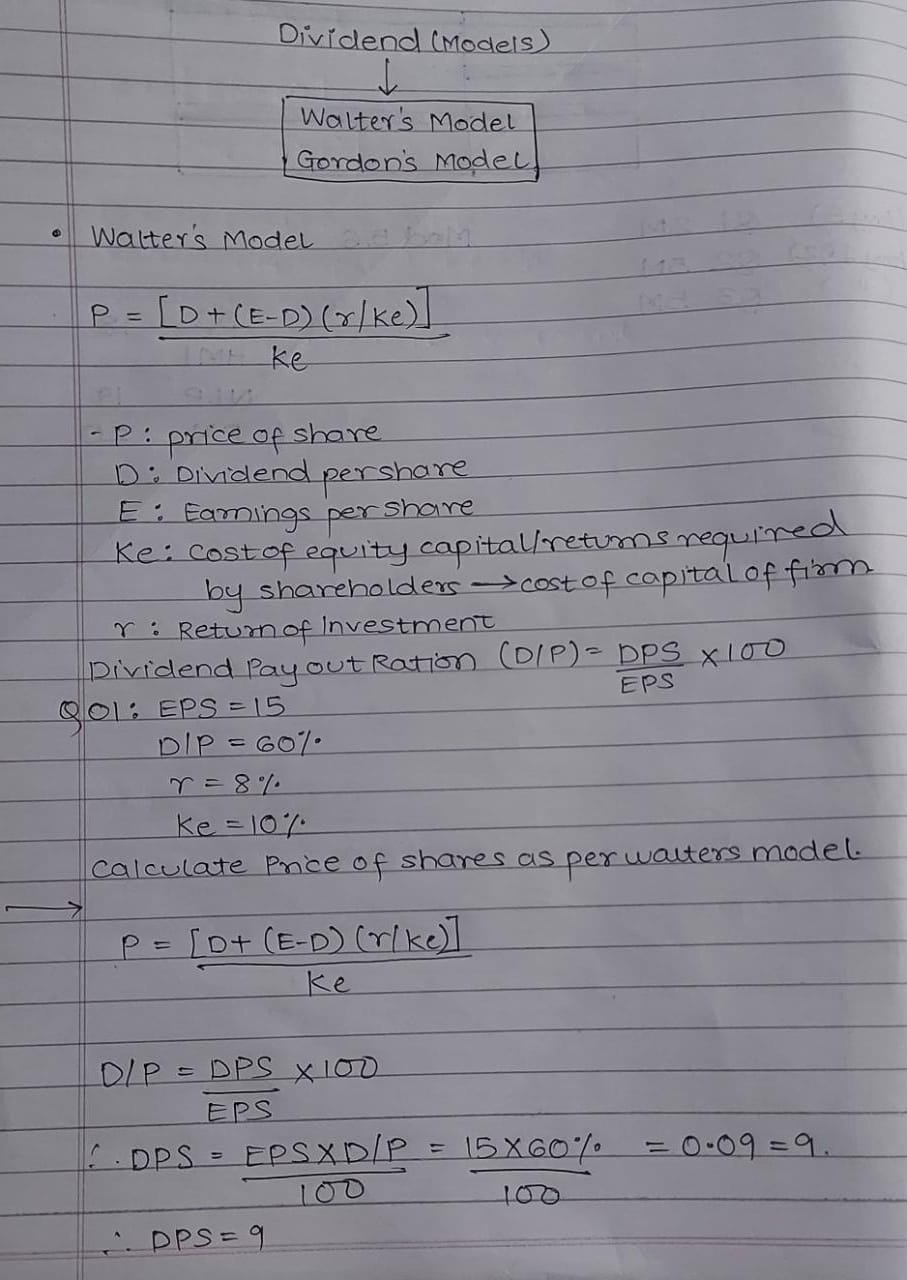 Dividend (Models)
↓
Walter's Model
Gordon's Model
• Walter's Model
P = [D + (E-D) (r/ke)]
ke
- P : price of share
D : Dividend per share
E : Earnings per share
Ke : cost of equity capital/returns required
by shareholders → cost of capital of firm
r : Return of Investment
Dividend Pay out Ration (D/P) = DPS × 100
EPS
Q01: EPS = 15
D/P = 60%
r = 8%
Ke = 10%
Calculate Price of shares as per walters model.
→
P = [D + (E-D) (r/ke)]
Ke
D/P = DPS × 100
EPS
∴ DPS = EPS × D/P = 15 × 60% = 0.09 = 9.
100 100
∴ DPS = 9